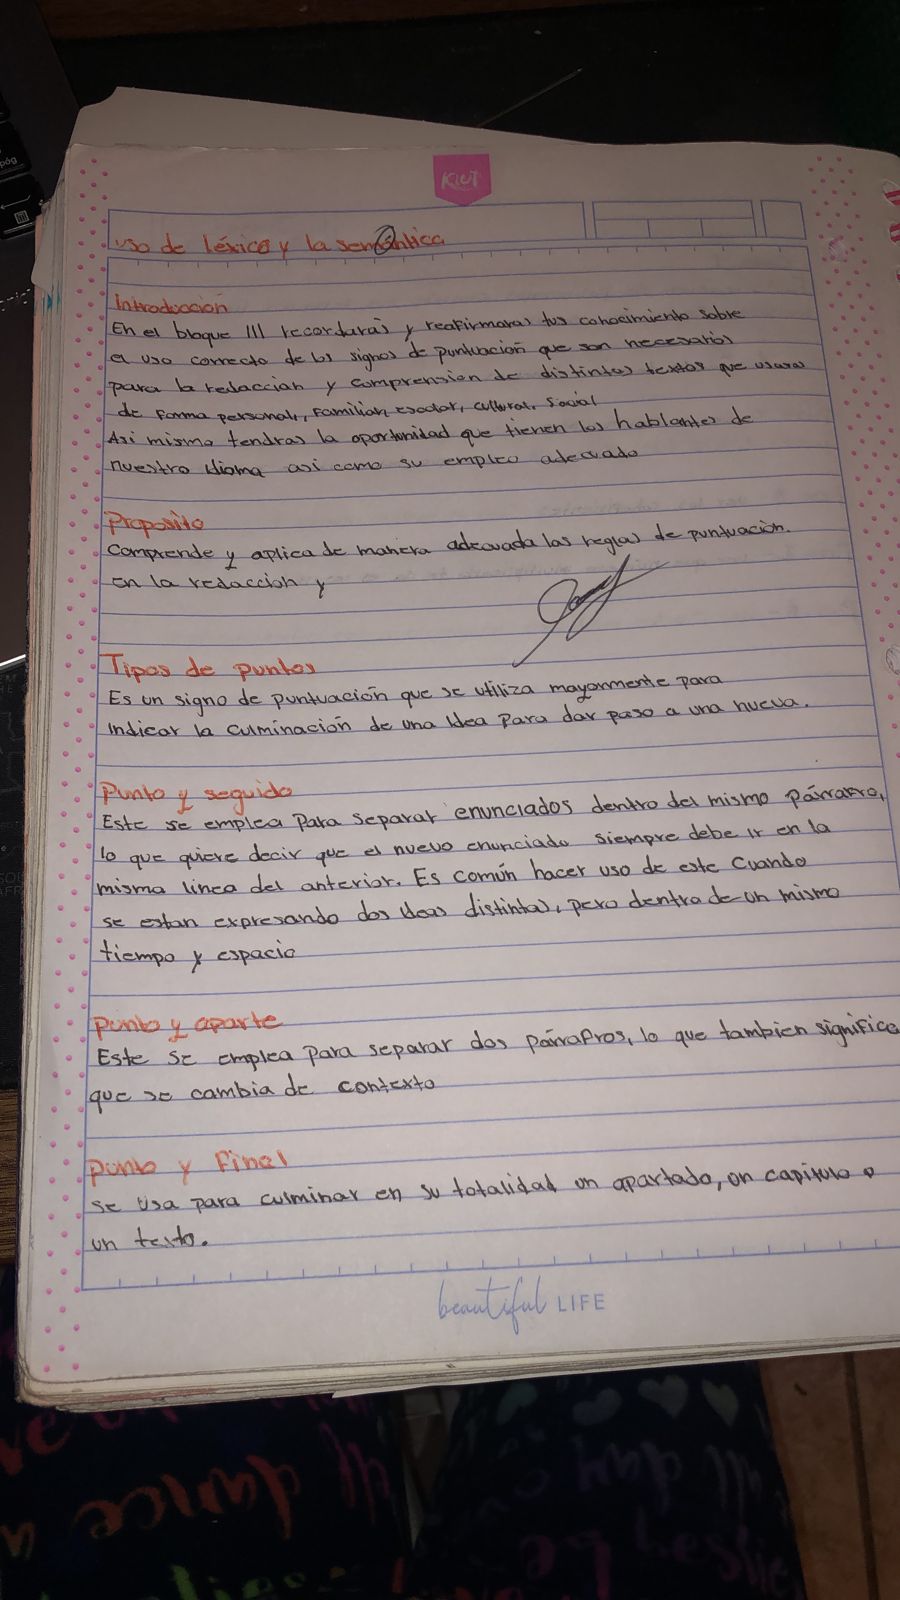 KIUT
uso de léxico y la semántica
Introducción
En el bloque III recordarás y reafirmaras tus conocimiento sobre
el uso correcto de los signos de puntuación que son necesarios
para la redaccian y comprension de distintos textos que usaras
de forma personal, familiar, escolar, cultural, social
Asi mismo tendras la oportunidad que tienen los hablantes de
nuestro idioma asi como su empleo adecuado
Proposito
Comprende y aplica de manera adecuada las reglas de puntuación.
en la redaccion y
Tipos de puntos
Es un signo de puntuación que se utiliza mayormente para
indicar la culminación de una idea para dar paso a una nueva.
Punto y seguido
Este se emplea para separar enunciados dentro del mismo párrafro,
lo que quiere decir que el nuevo enunciado siempre debe ir en la
misma linea del anterior. Es común hacer uso de este cuando
se estan expresando dos ideas distintas, pero dentro de un mismo
tiempo y espacio
punto y aparte
Este se emplea para separar dos párrafros, lo que tambien significa
que se cambia de contexto
punto y final
se usa para culminar en su totalidad un apartado, un capitulo o
un texto.
beautiful LIFE